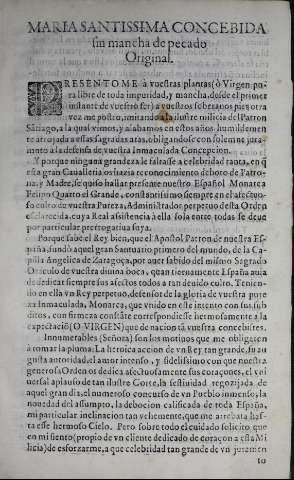 MARIA SANTISSIMA CONCEBIDA
sin mancha de pecado
Original.
PRESENTOME à vuestras plantas (ò Virgen pu-
ra libre de toda impuridad, y mancha, desde el primer
instante de vuestro ser) a vuestros soberanos pies otra
vez me postro, imitando a la ilustre milicia del Patron
Sātiago, a la qual vimos, y alabamos en estos años humildemen
te arrojada a essas sagradas aras, obligandose con solemne jura-
mento a la defensa de vuestra Inmaculada Concepcion.
Y porque ninguna grandeza le faltasse a celebridad tanta, en q̃
esta gran Cavalleria os hazia reconocimiento de Patro-
na, y Madre, se quiso hallar presente nuestro Español Monarca
Felipo Quarto el Grande, constantissimo siempre en el afectuo-
so culto de vuestra Pureza, Administrador perpetuo desta Orden
esclarecida, cuya Real asistencia a ella sola entre todas se deve
por particular prerrogatiua suya.
Porque sabe el Rey bien, que el Apostol Patron de nuestra Es-
paña, fundò aquel gran Santuario primero del mundo, de la Ca-
pilla Angelica de Zaragoça, por auer sabido del mismo Sagrado
Oraculo de vuestra diuina boca, quan tiernamente España auia
de dedicar siempre sus afectos todos a tan deuido culto. Tenien-
do en ella vn Rey perpetuo, defensor de la gloria de vuestra pure
za Inmaculada, Monarca, que vnido en este intento con sus sub
ditos, con firmeza constāte correspondiesse hermosamente a la
expectaciō (O VIRGEN) que de nacion tā vuestra concebistes.
Innumerables (Señora) son los motiuos que me obligaron
à tomar la pluma. La heroica accion de vn Rey tan grande, su au
gusta autoridad, el amor intenso, y fidelissimo con que nuestra
generosa Orden os dedica afectuosamente sus coraçones, el vni
uersal aplauso de tan ilustre Corte, la festiuidad regozijada de
aquel gran dia, el numeroso concurso de vn Pueblo inmenso, la
nouedad del assumpto, la deuocion calificada de toda España,
mi particular inclinacion tan vehemente, que me arrebata has-
ta esse hermoso Cielo. Pero sobre todo el cuidado solicito que
en mi siento (propio de vn cliente dedicado de coraçon a essa Mi
licia) de esforzarme, a que celebridad tan grande de vn juramen
to